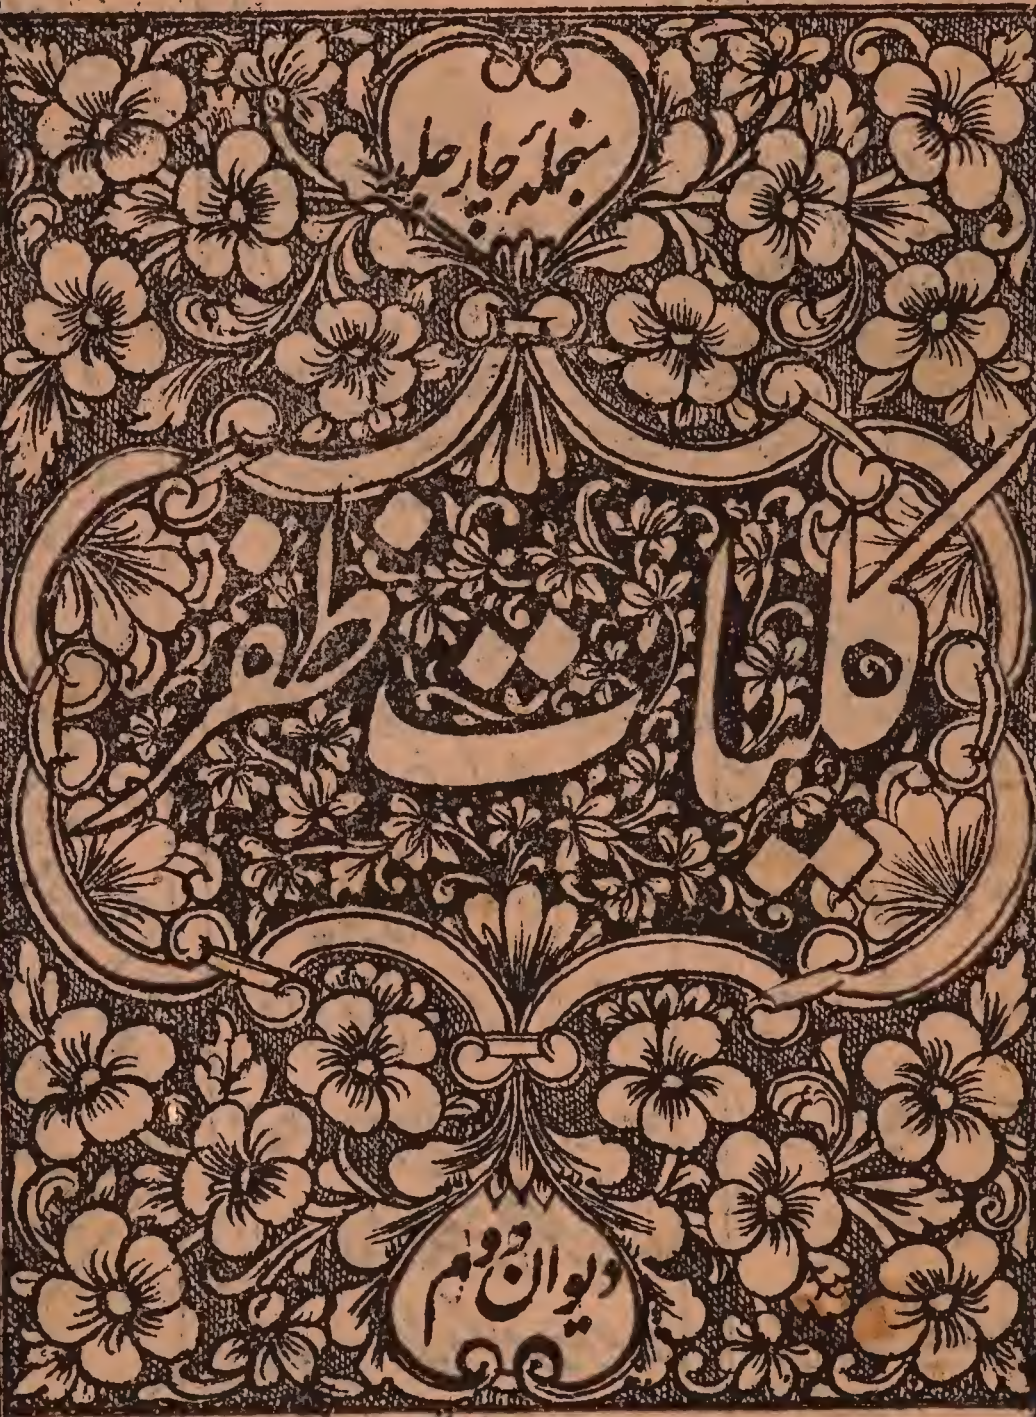 منجملہ چار جلد
کلیات ظفر
دیوان دوم